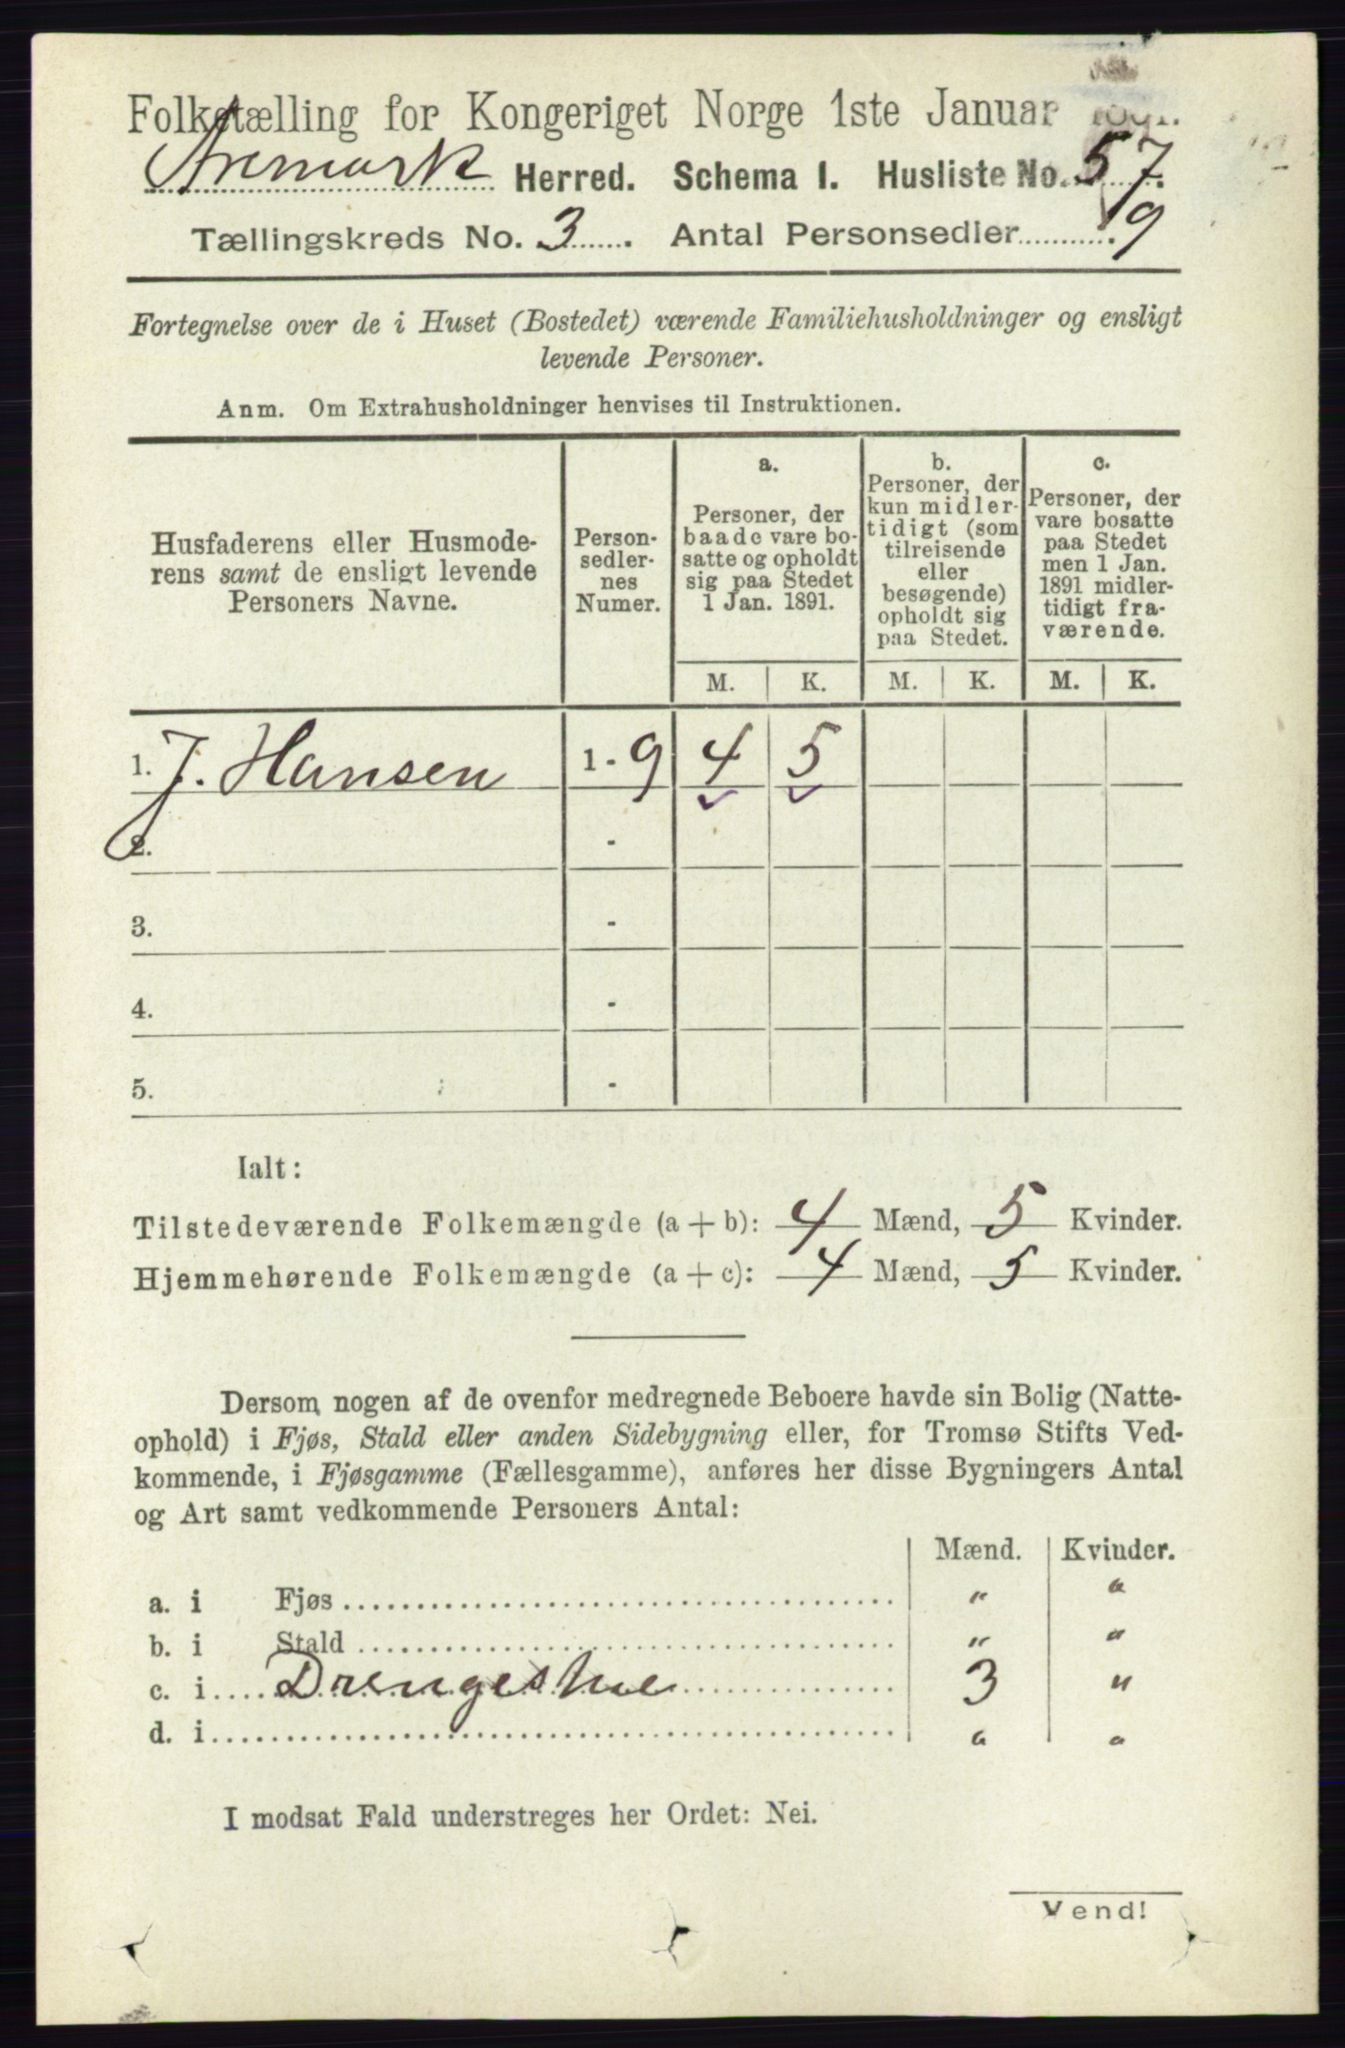 Folketælling for Kongeriget Norge 1ste Januar 1891.
Aremark Herred. Schema I. Husliste No. 57.
Tællingskreds No. 3. Antal Personsedler 9
Fortegnelse over de i Huset (Bostedet) værende Familiehusholdninger og ensligt
levende Personer.
Anm. Om Extrahusholdninger henvises til Instruktionen.
Husfaderens eller Husmode-
rens samt de ensligt levende
Personers Navne.
Person-
sedler-
nes
Numer.
a.
Personer, der
baade vare bo-
satte og opholdt
sig paa Stedet
1 Jan. 1891.
b.
Personer, der
kun midler-
tidigt (som
tilreisende
eller
besøgende)
opholdt sig
paa Stedet.
c.
Personer, der
vare bosatte
paa Stedet
men 1 Jan.
1891 midler-
tidigt fra-
værende.
M. K. M. K. M. K.
1. J. Hansen 1 - 9 4 5
2. -
3. -
4. -
5. -
Ialt:
Tilstedeværende Folkemængde (a + b): 4 Mænd, 5 Kvinder.
Hjemmehørende Folkemængde (a + c): 4 Mænd, 5 Kvinder.
Dersom nogen af de ovenfor medregnede Beboere havde sin Bolig (Natte-
ophold) i Fjøs, Stald eller anden Sidebygning eller, for Tromsø Stifts Ved-
kommende, i Fjøsgamme (Fællesgamme), anføres her disse Bygningers Antal
og Art samt vedkommende Personers Antal:
Mænd. Kvinder.
a. i Fjøs " "
b. i Stald " "
c. i Drengestue 3 "
d. i " "
I modsat Fald understreges her Ordet: Nei.
Vend!